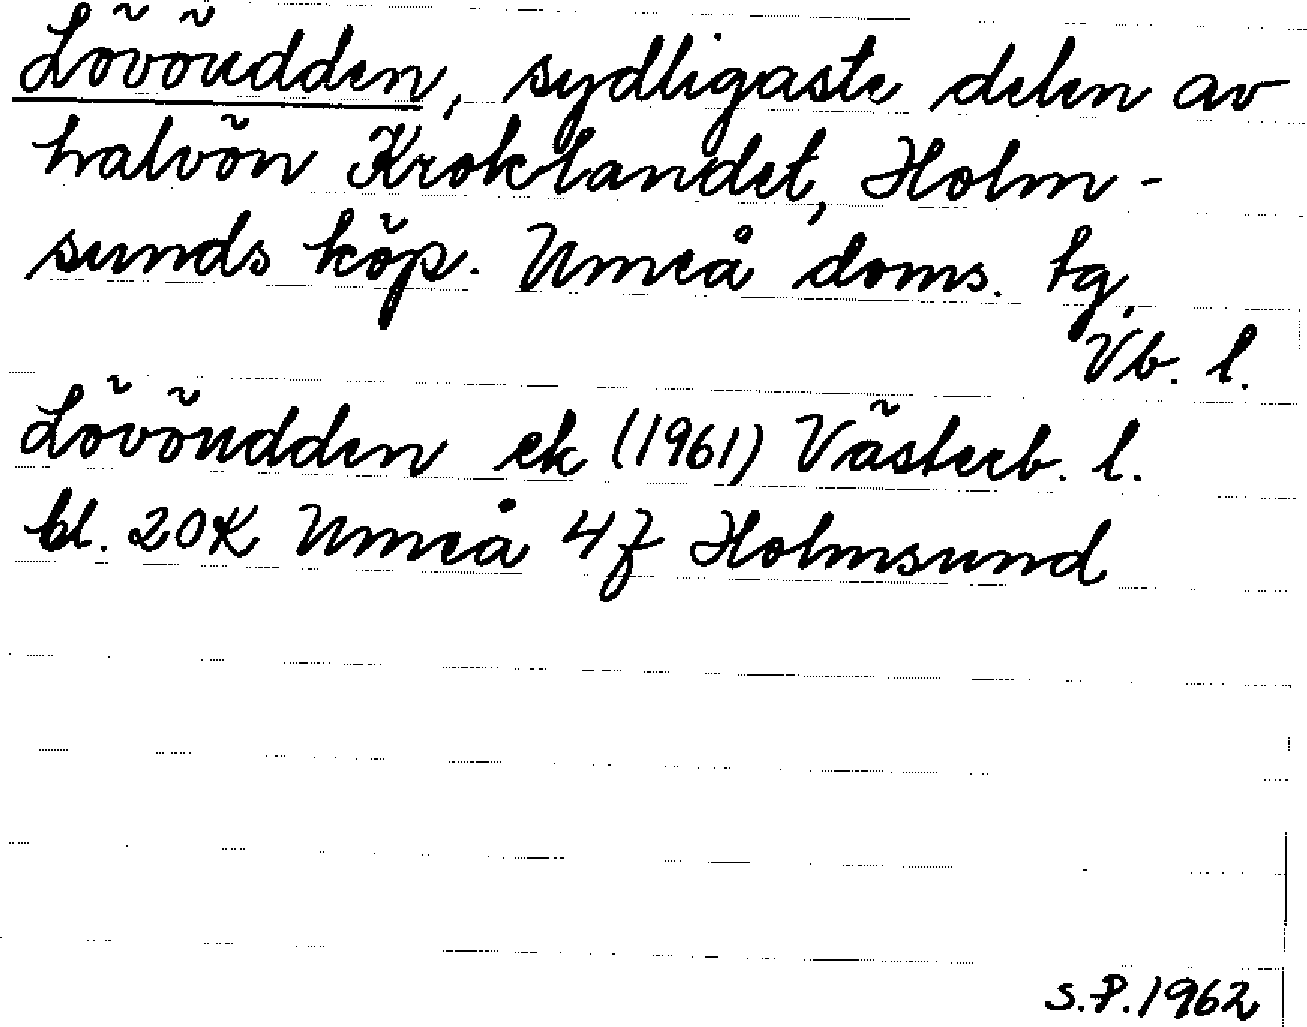 Lövöudden, sydligaste delen av
halvön Kroklandet, Holm-
sunds köp. Umeå doms. tg,
Vb. l.
Lövöudden ek (1961) Västerb. l.
bl. 20K Umeå 4f Holmsund
S.P. 1962